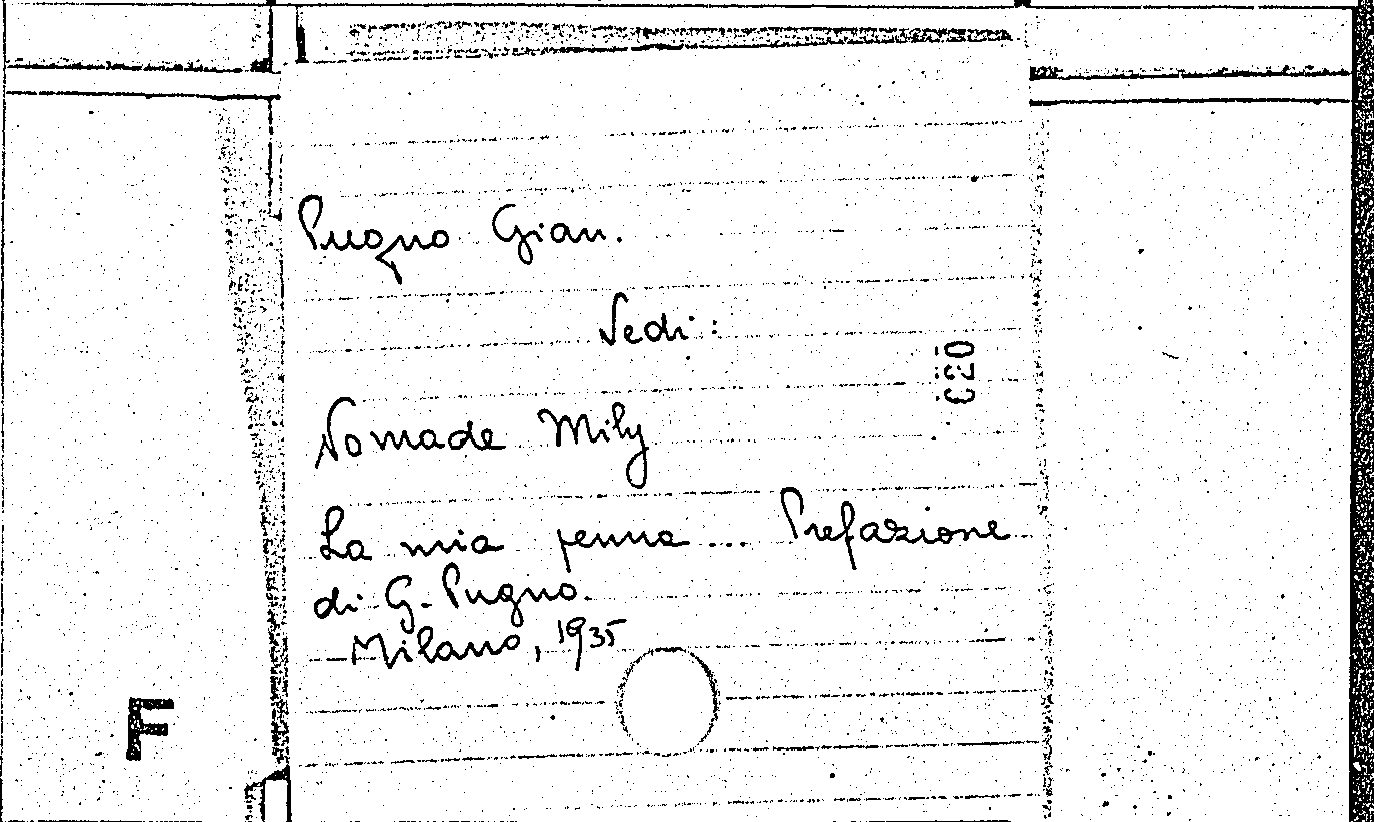 Pugno Gian.
Vedi:
Nomade Mily
La mia penna... Prefazione
di G. Pugno.
Milano, 1935
F